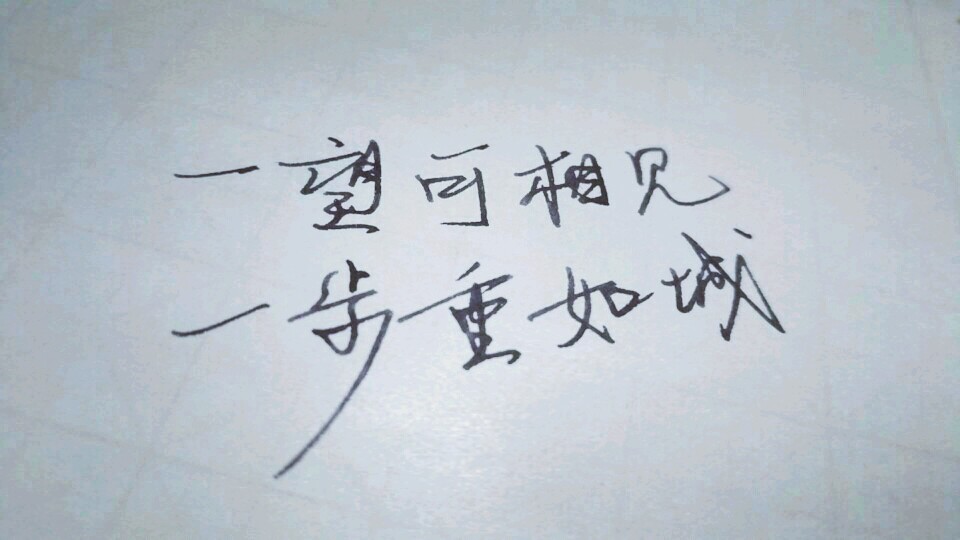 一望可相见
一步重如城